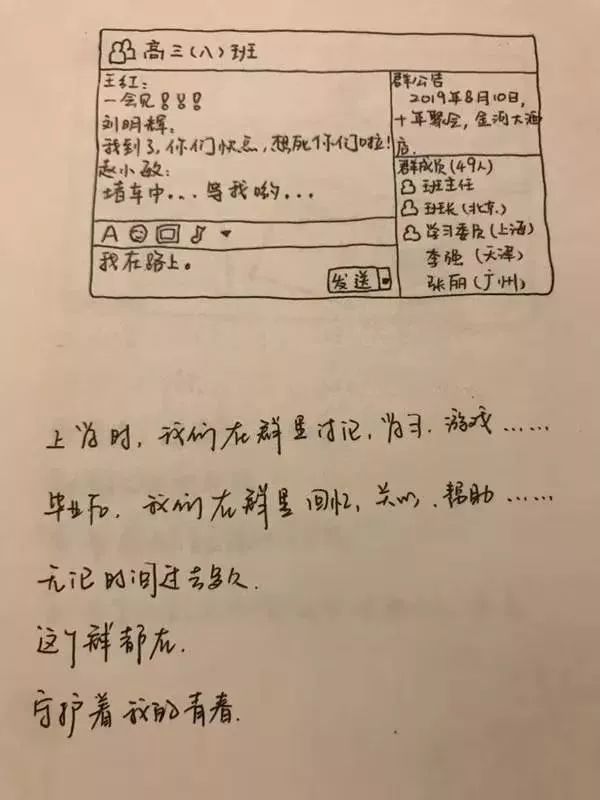 高三(八)班
王红:
一会见!!!
刘明辉:
我到了,你们快点,想死你们啦!
赵小敏:
堵车中...等我哟...
A
我在路上。
发送
群公告
2019年8月10日,
十年聚会,金河大酒
店.
群成员(49人)
班主任
班长(北京)
学习委员(上海)
李强(天津)
张丽(广州)
上学时,我们在群里讨论,学习.游戏……
毕业后,我们在群里回忆,关心,帮助……
无论时间过去多久.
这个群都在.
守护着我的青春.